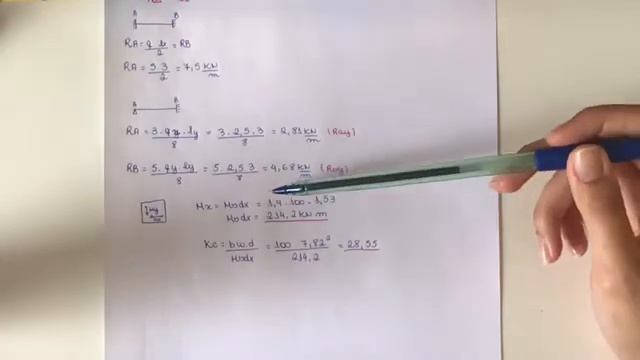 A B
RA = q lx / 2 = RB
RA = 5.3 / 2 = 7,5 KN/m
A B
RA = 3.qy.ly / 8 = 3.2,5.3 / 8 = 2,81 KN/m (Ray)
RB = 5.qy.ly / 8 = 5.2,5.3 / 8 = 4,68 KN/m
Mx = Modx = 1,4.100.1,53
Modx = 214,2 KN m
Kc = bw.d / Modx = 100 7,82² / 214,2 = 28,55